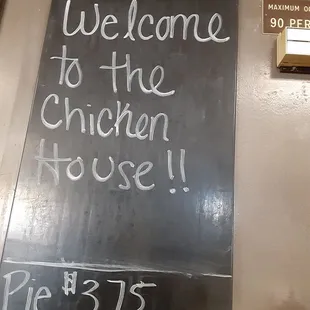 Welcome
to the
Chicken
House!!
Pie $375
MAXIMUM
90 PER